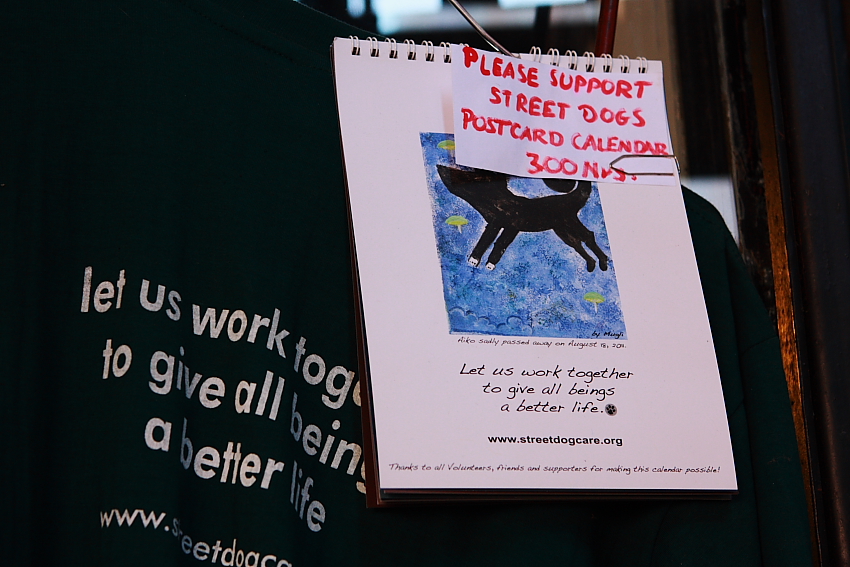 PLEASE SUPPORT
STREET DOGS
POSTCARD CALENDAR
300 NRS.
by Mugli
Aiko sadly passed away on August 18, 2011.
Let us work together
to give all beings
a better life.
www.streetdogcare.org
Thanks to all Volunteers, friends and supporters for making this calendar possible!
let us work toge
to give all being
a better life
www.streetdogca